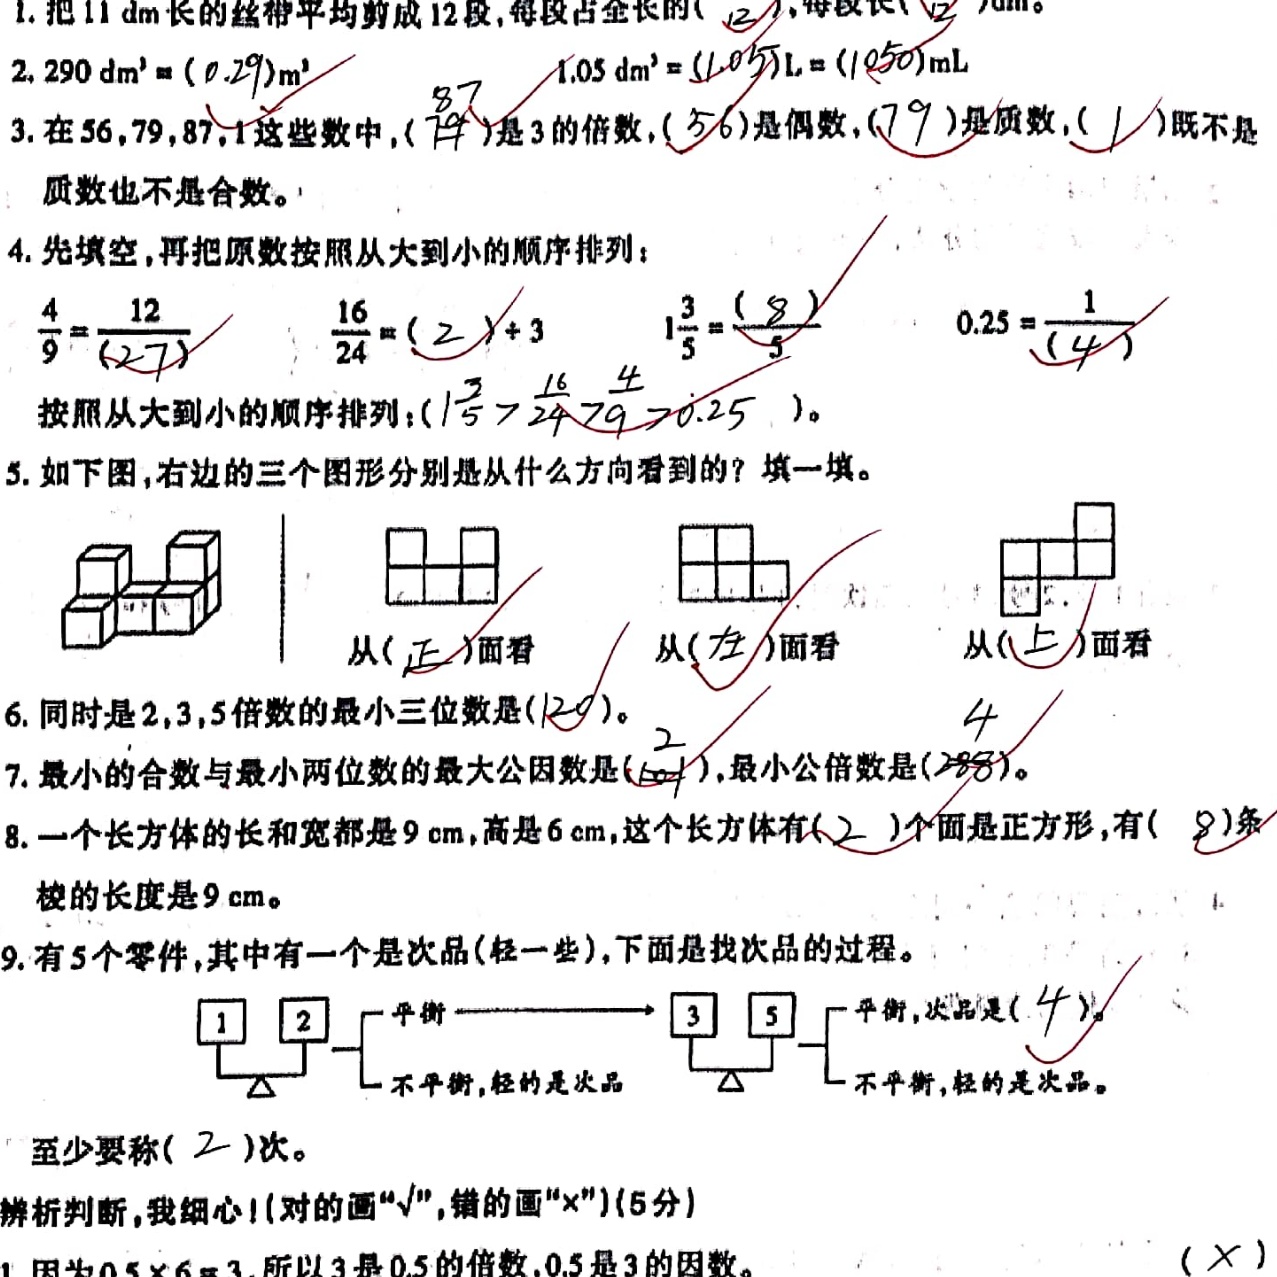 1. 把 11 dm 长的丝带平均剪成 12 段,每段占全长的( 12 ),每段长( 12 )dm。
2. 290 dm³ = (0.29)m³ 1.05 dm³ = (1.05)L = (1050)mL
87
3. 在 56,79,87,1 这些数中,( )是 3 的倍数,( 56 )是偶数,( 79 )是质数,( 1 )既不是
质数也不是合数。
4. 先填空,再把原数按照从大到小的顺序排列:
4/9 = 12/(27) 16/24 = ( 2 ) ÷ 3 1 3/5 = ( 8 )/5 0.25 = 1/( 4 )
按照从大到小的顺序排列:(1 3/5 > 16/24 > 4/9 > 0.25 )。
5. 如下图,右边的三个图形分别是从什么方向看到的? 填一填。
从( 正 )面看 从( 左 )面看 从( 上 )面看
6. 同时是 2,3,5 倍数的最小三位数是(120)。
2 4
7. 最小的合数与最小两位数的最大公因数是( ),最小公倍数是( )。
8. 一个长方体的长和宽都是 9 cm,高是 6 cm,这个长方体有( 2 )个面是正方形,有( 8 )条
棱的长度是 9 cm。
9. 有 5 个零件,其中有一个是次品(轻一些),下面是找次品的过程。
1 2 平衡 3 5 平衡,次品是( 4 )。
不平衡,轻的是次品 不平衡,轻的是次品。
至少要称( 2 )次。
辨析判断,我细心!(对的画“√”,错的画“×”)(5 分)
1. 因为 0.5 × 6 = 3,所以 3 是 0.5 的倍数,0.5 是 3 的因数。 ( × )